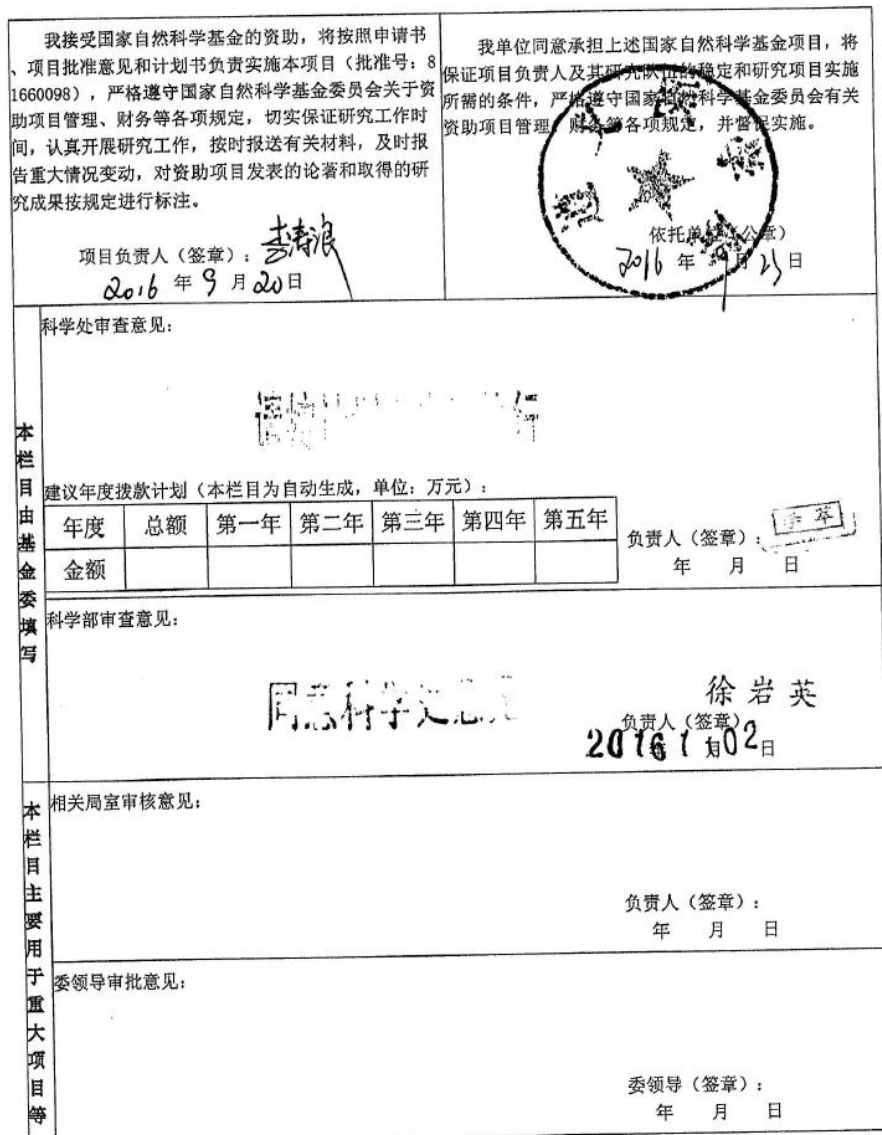 我接受国家自然科学基金的资助，将按照申请书
、项目批准意见和计划书负责实施本项目（批准号：8
1660098），严格遵守国家自然科学基金委员会关于资
助项目管理、财务等各项规定，切实保证研究工作时
间，认真开展研究工作，按时报送有关材料，及时报
告重大情况变动，对资助项目发表的论著和取得的研
究成果按规定进行标注。
项目负责人（签章）：
2016 年 9 月 20 日
我单位同意承担上述国家自然科学基金项目，将
保证项目负责人及其研究队伍的稳定和研究项目实施
所需的条件，严格遵守国家自然科学基金委员会有关
资助项目管理、财务等各项规定，并督促实施。
依托单位（公章）
2016 年 9 月 23 日
本栏目由基金委填写
科学处审查意见：
建议年度拨款计划（本栏目为自动生成，单位：万元）：
年度 总额 第一年 第二年 第三年 第四年 第五年
金额
负责人（签章）：
年 月 日
科学部审查意见：
同意科学处意见
徐岩英
负责人（签章）
2016 年 11 月 02 日
本栏目主要用于重大项目等
相关局室审核意见：
负责人（签章）：
年 月 日
委领导审批意见：
委领导（签章）：
年 月 日